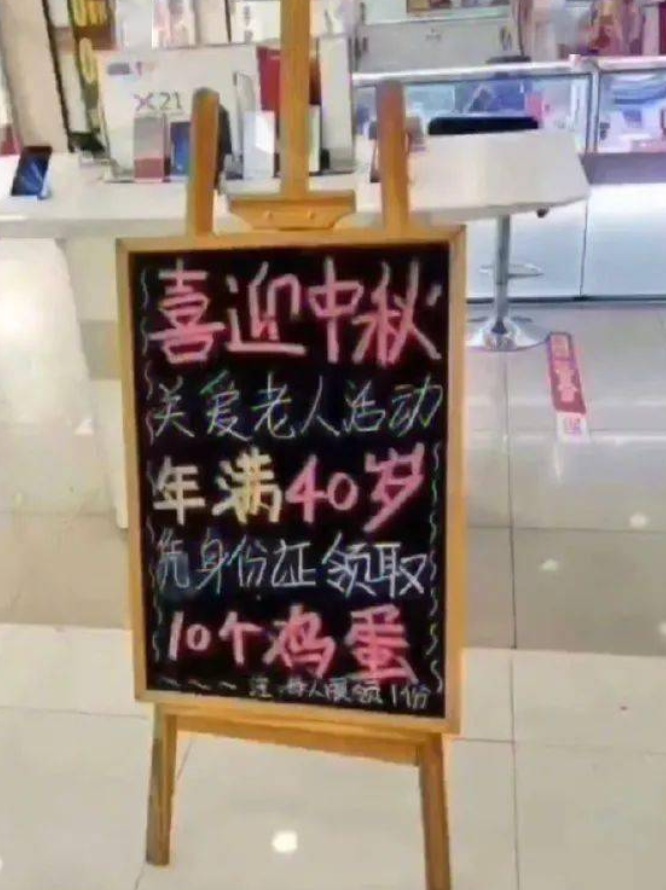 X21
喜迎中秋
关爱老人活动
年满40岁
凭身份证领取
10个鸡蛋
注:每人限领1份